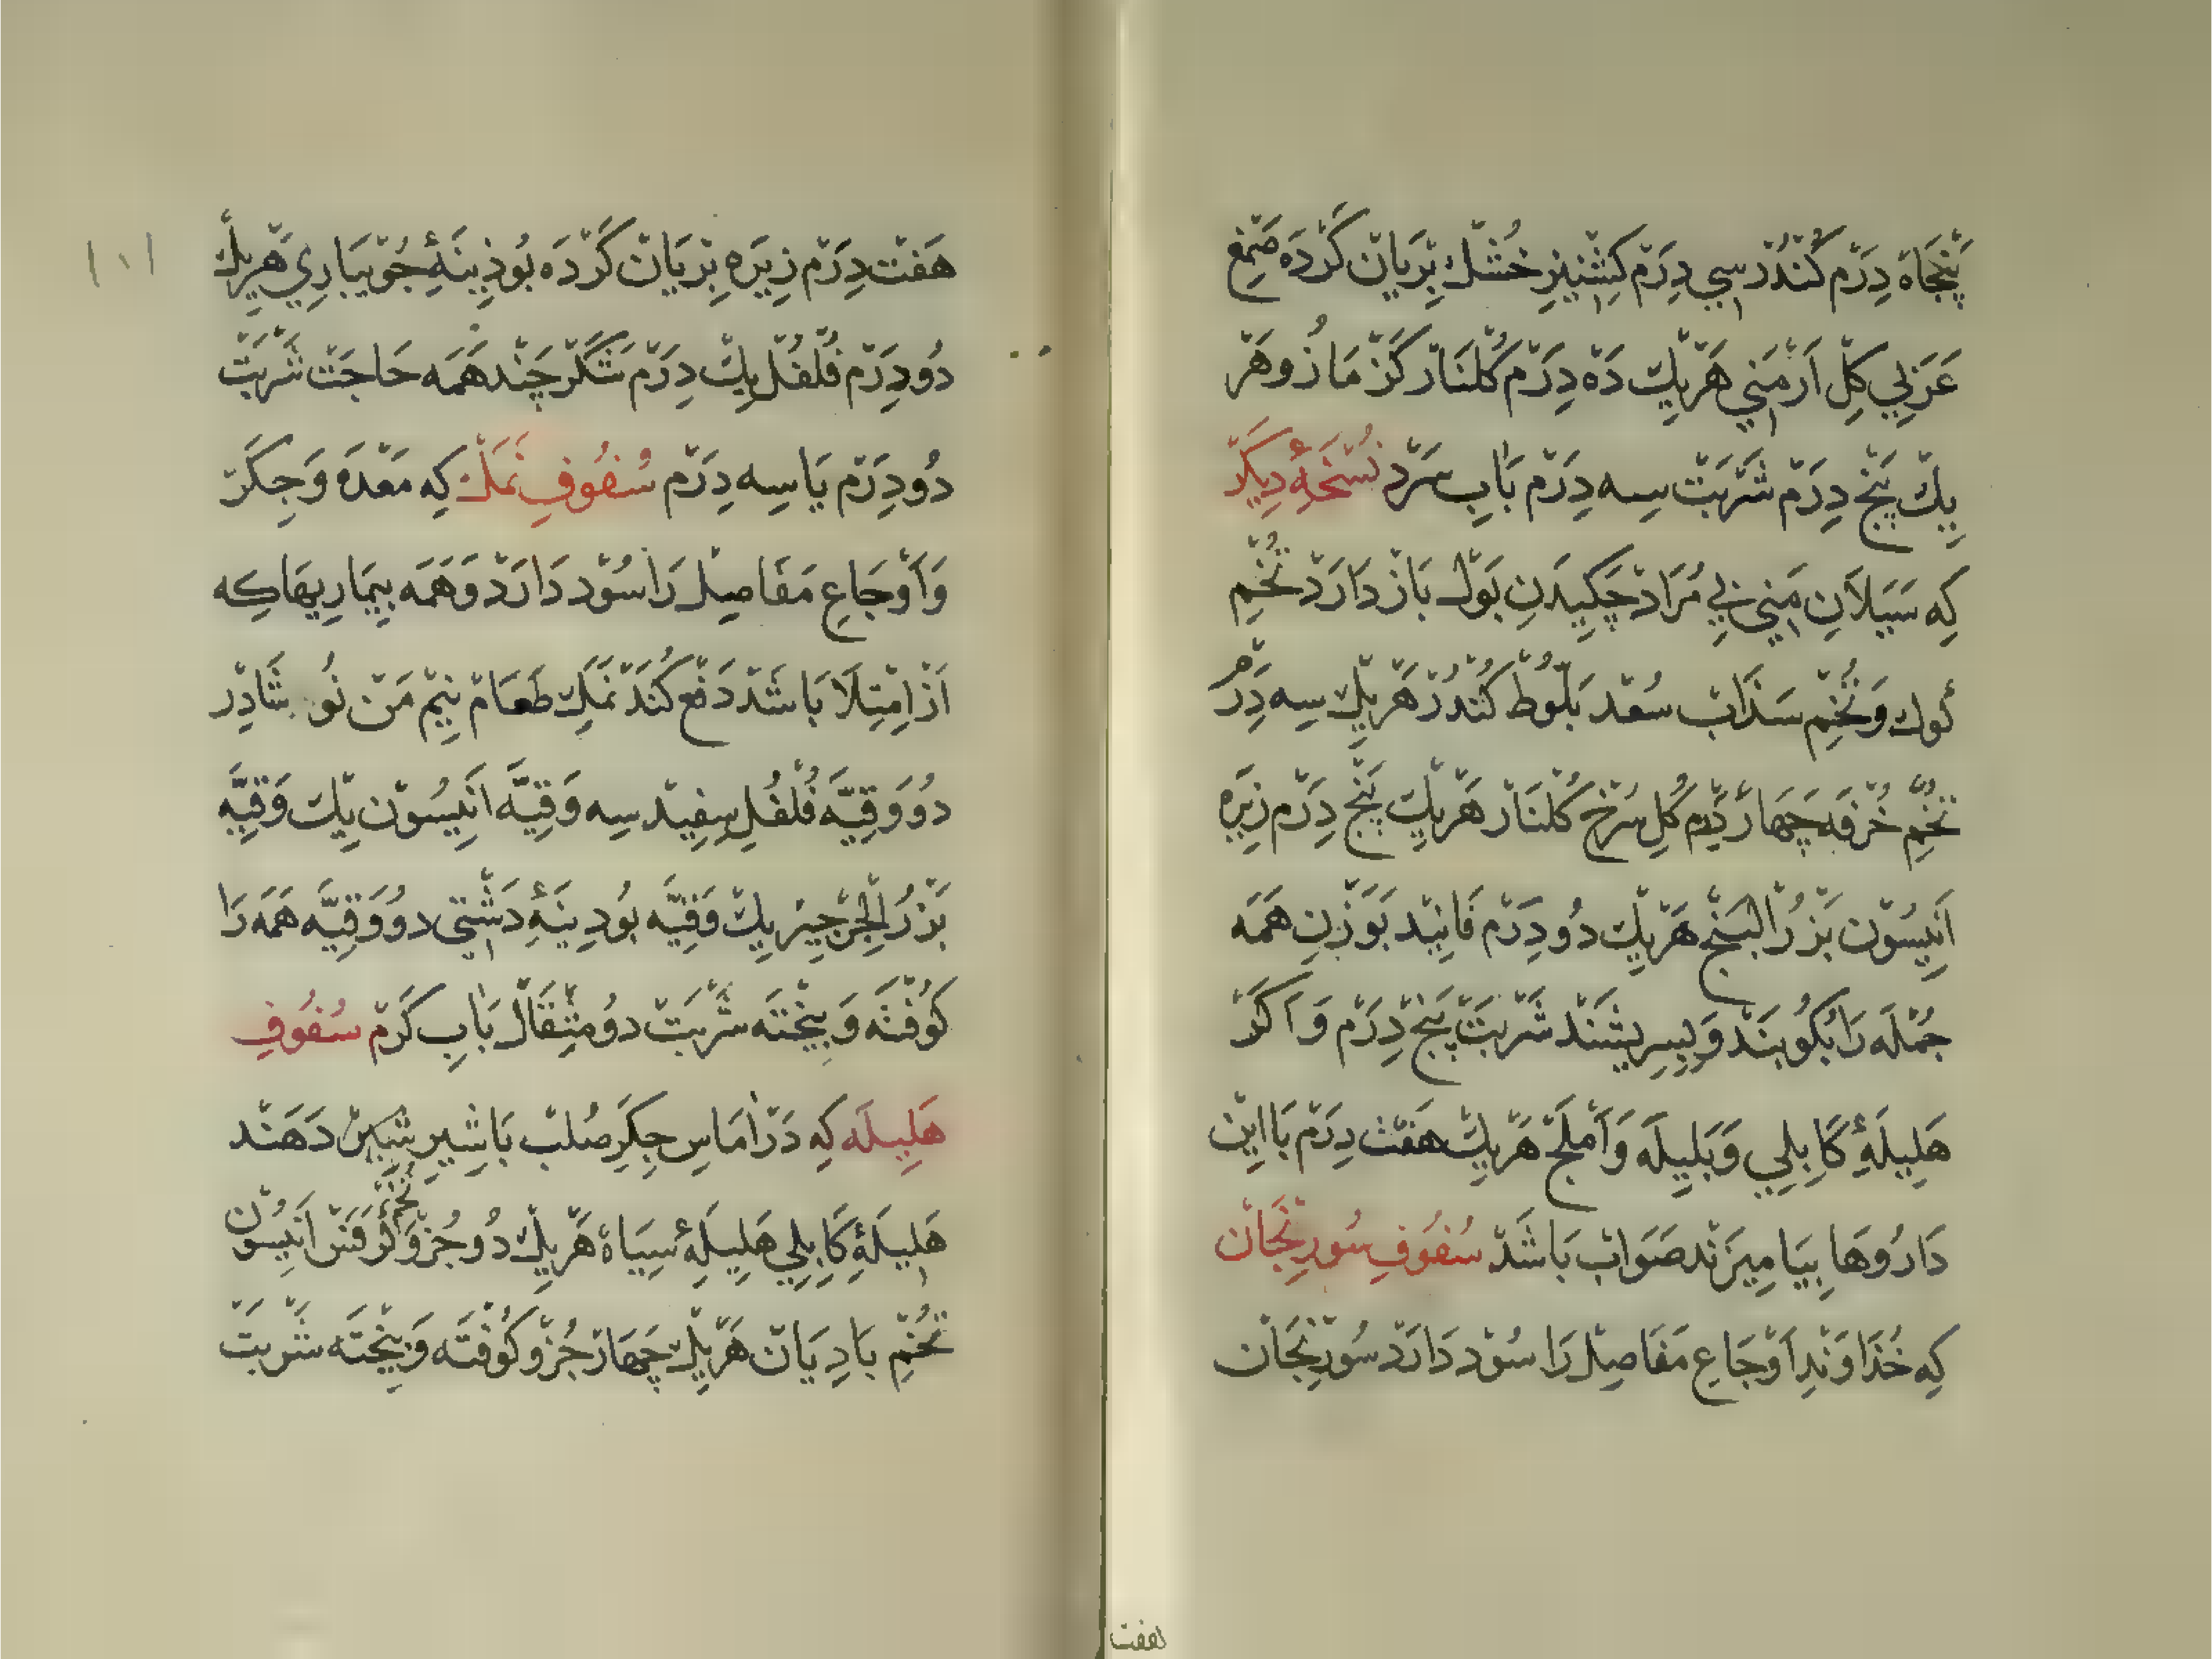 پَنْجَاهْ دِرَمْ كُنْدُرْ سِي دِرَمْ كِشْنِيزِ خُشْكْ بِرْيَانْ كَرْدَه صَمْغِ
عَرَبِي كِلِ اَرْمَنِي هَرْ يِكْ دَهْ دِرَمْ كُلْنَارْ كَزْ مَازُو هَرْ
يِكْ پَنْجْ دِرَمْ شَرْبَتْ سِه دِرَمْ بَابِ سَرْد نُسْخَۀِ دِيكَرْ
كِه سَيَلَانِ مَنِي بِي مُرَادْ چَكِيدَنِ بَوْلْ بَازْ دَارَدْ تُخْمِ
كُوك وَ تُخْمِ سَذَابْ سُعْد بَلُّوطْ كُنْدُرْ هَرْ يِكْ سِه دِرَمْ
تُخْمِ خُرْفَه چَهَارْ دِرَمْ كُلِ سُرْخْ كُلْنَارْ هَرْ يِكْ پَنْجْ دِرَمْ زِيرَه
اَنِيسُوْن بَزْرُ الْبَنْجْ هَرْ يِكْ دُو دِرَمْ فَانِيْد بَوَزْنِ هَمَه
جُمْلَه رَا بِكُوبَنْد وَ بِسِرِيشَنْد شَرْبَتْ پَنْجْ دِرَمْ وَ اَكَرْ
هَلِيلَۀِ كَابِلِي وَ بَلِيلَه وَ آمْلَجْ هَرْ يِكْ هَفْتْ دِرَمْ بَا اِينْ
دَارُوهَا بِيَامِيزَنْد صَوَابْ بَاشَدْ سُفُوفِ سُورِنْجَانْ
كِه خُذَاوَنْدِ اَوْجَاعِ مَفَاصِلْ رَا سُوْد دَارَدْ سُورِنْجَانْ
هفت
١٠١
هَفْتْ دِرَمْ زِيرَه بِرْيَانْ كَرْدَه بُوذِينَۀِ جُوْيبَارِي هَرْ يِكْ
دُو دِرَمْ فُلْفُلْ يِكْ دِرَمْ شَكَرْ چَنْد هَمَه حَاجَتْ شَرْبَتْ
دُو دِرَمْ يَا سِه دِرَمْ سُفُوفِ نَمَكْ كِه مَعْدَه وَ جِكَرْ
وَ اَوْجَاعِ مَفَاصِلْ رَا سُوْد دَارَدْ وَ هَمَه بِيمَارِيهَا كِه
اَزْ اِمْتِلَا بَاشَدْ دَفْع كُنَدْ نَمَكِ طَعَامْ نِيمْ مَنْ نُوشَادِرْ
دُو وَقِيَّه فُلْفُلِ سِفِيد سِه وَقِيَّه اَنِيسُوْن يِكْ وَقِيَّه
بَزْرُ الْجِرْجِيرْ يِكْ وَقِيَّه بُودِينَۀِ دَشْتِي دُو وَقِيَّه هَمَه رَا
كُوفْتَه وَ بِيخْتَه شَرْبَتْ دُو مِثْقَالْ بَابِ كَرْمْ سُفُوفِ
هَلِيلَه كِه دَرْ اٰمَاسِ جِكَرِ صُلْبْ بَا شِيرِ شُتر دَهَنْد
هَلِيلَۀِ كَابِلِي هَلِيلَۀِ سِيَاهْ هَرْ يِكْ دُو جُزْو تُخْمِ كَرَفْسْ اَنِيسُوْن
تُخْمِ بَادِيَانْ هَرْ يِكْ چَهَارْ جُزْو كُوفْتَه وَ بِيخْتَه شَرْبَتْ